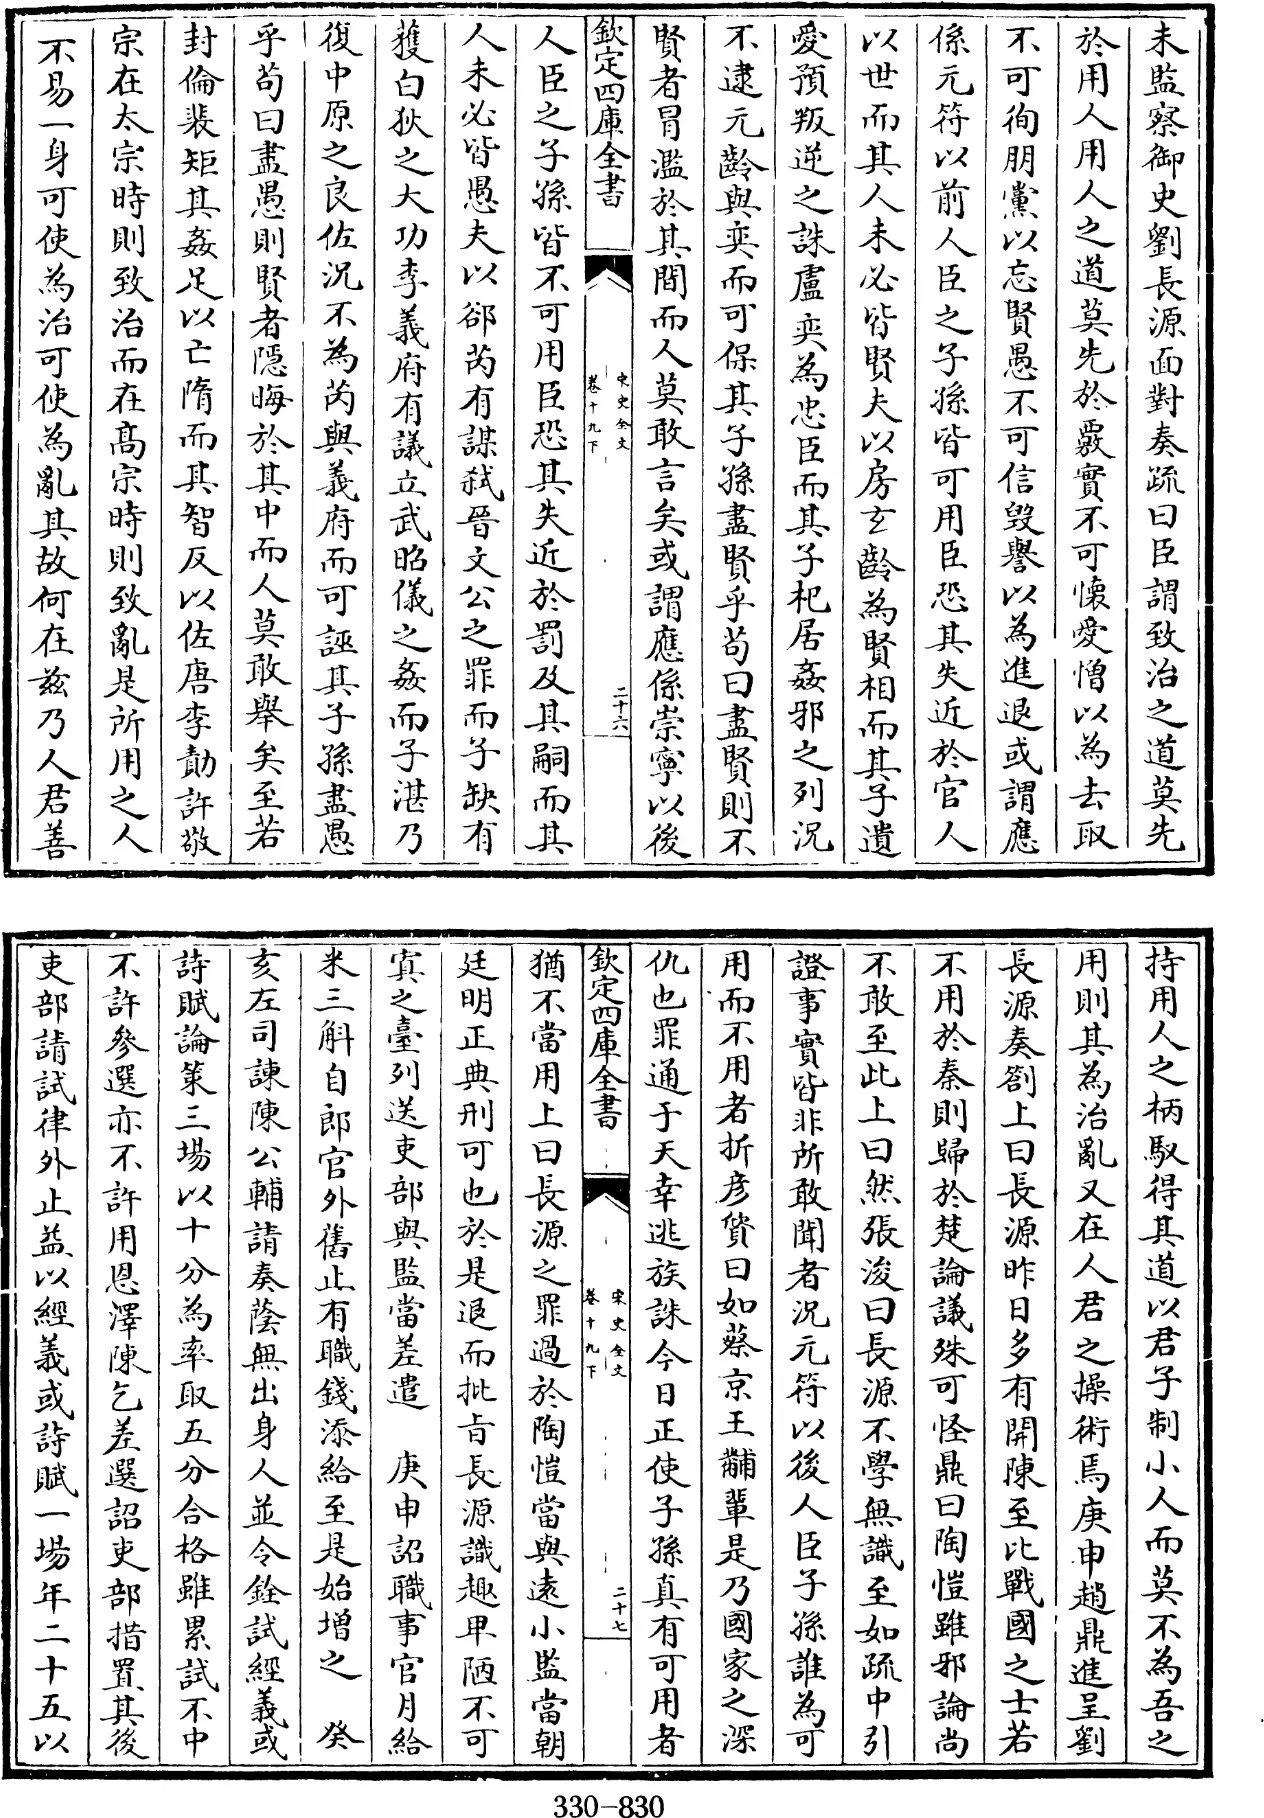 未監察御史劉長源面對奏疏曰臣謂致治之道莫先
於用人用人之道莫先於覈實不可懷愛憎以為去取
不可徇朋黨以忘賢愚不可信毀譽以為進退或謂應
係元符以前人臣之子孫皆可用臣恐其失近於官人
以世而其人未必皆賢夫以房玄齡為賢相而其子遺
愛預叛逆之誅盧奕為忠臣而其子杞居姦邪之列況
不逮元齡與奕而可保其子孫盡賢乎茍曰盡賢則不
賢者冒濫於其間而人莫敢言矣或謂應係崇寧以後
欽定四庫全書
宋史全文
卷十九下
二十六
人臣之子孫皆不可用臣恐其失近於罰及其嗣而其
人未必皆愚夫以郤芮有謀弒晉文公之罪而子缺有
獲白狄之大功李義府有議立武昭儀之姦而子湛乃
復中原之良佐況不為芮與義府而可誣其子孫盡愚
乎茍曰盡愚則賢者隱晦於其中而人莫敢舉矣至若
封倫裴矩其姦足以亡隋而其智反以佐唐李勣許敬
宗在太宗時則致治而在髙宗時則致亂是所用之人
不易一身可使為治可使為亂其故何在茲乃人君善
持用人之柄馭得其道以君子制小人而莫不為吾之
用則其為治亂又在人君之操術焉庚申趙鼎進呈劉
長源奏劄上曰長源昨日多有開陳至比戰國之士若
不用於秦則歸於楚論議殊可怪鼎曰陶愷雖邪論尚
不敢至此上曰然張浚曰長源不學無識至如疏中引
證事實皆非所敢聞者況元符以後人臣子孫誰為可
用而不用者折彦質曰如蔡京王黼輩是乃國家之深
仇也罪通于天幸逃族誅今日正使子孫真有可用者
欽定四庫全書
宋史全文
卷十九下
二十七
猶不當用上曰長源之罪過於陶愷當與遠小監當朝
廷明正典刑可也於是退而批㫖長源識趣卑陋不可
寘之臺列送吏部與監當差遣　庚申詔職事官月給
米三斛自郎官外舊止有職錢添給至是始增之　癸
亥左司諫陳公輔請奏蔭無出身人並令銓試經義或
詩賦論策三場以十分為率取五分合格雖累試不中
不許參選亦不許用恩澤陳乞差選詔吏部措置其後
吏部請試律外止益以經義或詩賦一場年二十五以
330-830